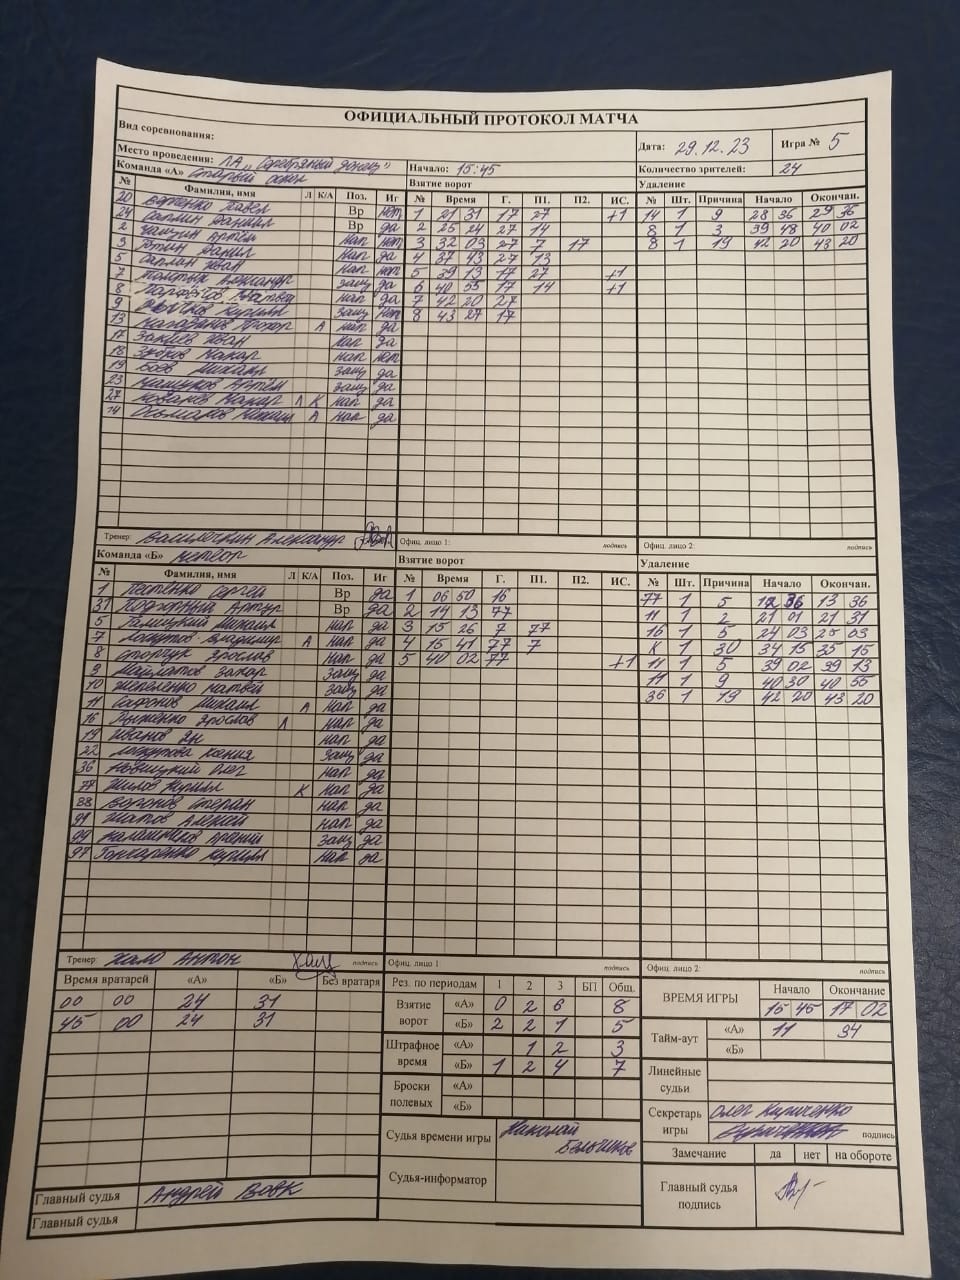 ОФИЦИАЛЬНЫЙ ПРОТОКОЛ МАТЧА
Вид соревнования: Дата: 29.12.23 Игра № 5
Место проведения: ЛА „Серебряный донец" Начало: 15:45 Количество зрителей: 24
Команда «А» Старый оскол Взятие ворот Удаление
№ Фамилия, имя Л К/А Поз. Иг № Время Г. П1. П2. ИС. № Шт. Причина Начало Окончан.
20 Павел Вр нет 1 21 31 17 27 +1 14 1 9 28 36 29 36
24 Саплин Даниил Вр да 2 25 24 27 14 8 1 3 39 48 40 02
2 Артём нап нет 3 32 03 27 7 17 8 1 19 42 20 43 20
3 Данил нап да 4 37 43 27 13
5 Саплин Иван нап нет 5 39 13 17 27 +1
7 Александр защ да 6 40 55 17 14 +1
8 нап да 7 42 20 27
9 Кирилл защ нет 8 43 27 17
13 Прохор А нап да
17 Иван нап да
18 Зюков Макар нап нет
19 Боев Михаил защ да
23 Артём защ да
27 Макар Л К нап да
14 А нап да
Тренер: Василечкин Александр Офиц. лицо 1: подпись Офиц. лицо 2: подпись
Команда «Б» Метеор Взятие ворот Удаление
№ Фамилия, имя Л К/А Поз. Иг № Время Г. П1. П2. ИС. № Шт. Причина Начало Окончан.
1 Пестенко Сергей Вр да 1 06 50 16 77 1 5 12 36 13 36
31 Подгорный Артур Вр да 2 14 13 77 11 1 2 21 01 21 31
5 Галицкий Михаил нап да 3 15 26 7 77 16 1 5 24 03 25 03
7 Лоскутов Владимир А нап да 4 15 41 77 7 К 1 30 34 15 35 15
8 Ярослав нап да 5 40 02 77 +1 11 1 5 39 02 39 13
9 Захар защ да 11 1 9 40 30 40 55
10 Матвей защ да 36 1 19 42 20 43 20
11 Сафонов Михаил А нап да
16 Ярослав Л нап да
19 Иванов Ян нап да
22 Лоскутова Ксения защ да
36 Новицкий Олег нап да
77 Шилов Кирилл К нап да
88 Воронов Степан нап да
91 Алексей нап да
99 Калашников Арсений защ да
97 Гончаренко Кирилл нап да
Тренер Хало Антон подпись Офиц. лицо 1 подпись Офиц. лицо 2: подпись
Время вратарей «А» «Б» Без вратаря
00 00 24 31
45 00 24 31
Рез. по периодам 1 2 3 БП Общ.
Взятие ворот «А» 0 2 6 8
«Б» 2 2 1 5
Штрафное время «А» 1 2 3
«Б» 1 2 4 7
Броски полевых «А»
«Б»
Судья времени игры Николай Бельчиков
Судья-информатор
ВРЕМЯ ИГРЫ Начало Окончание
15 45 17 02
Тайм-аут «А» 11 34
«Б»
Линейные судьи
Секретарь игры Олег Кириченко
подпись
Замечание да нет на обороте
Главный судья подпись
Главный судья Андрей Вовк
Главный судья